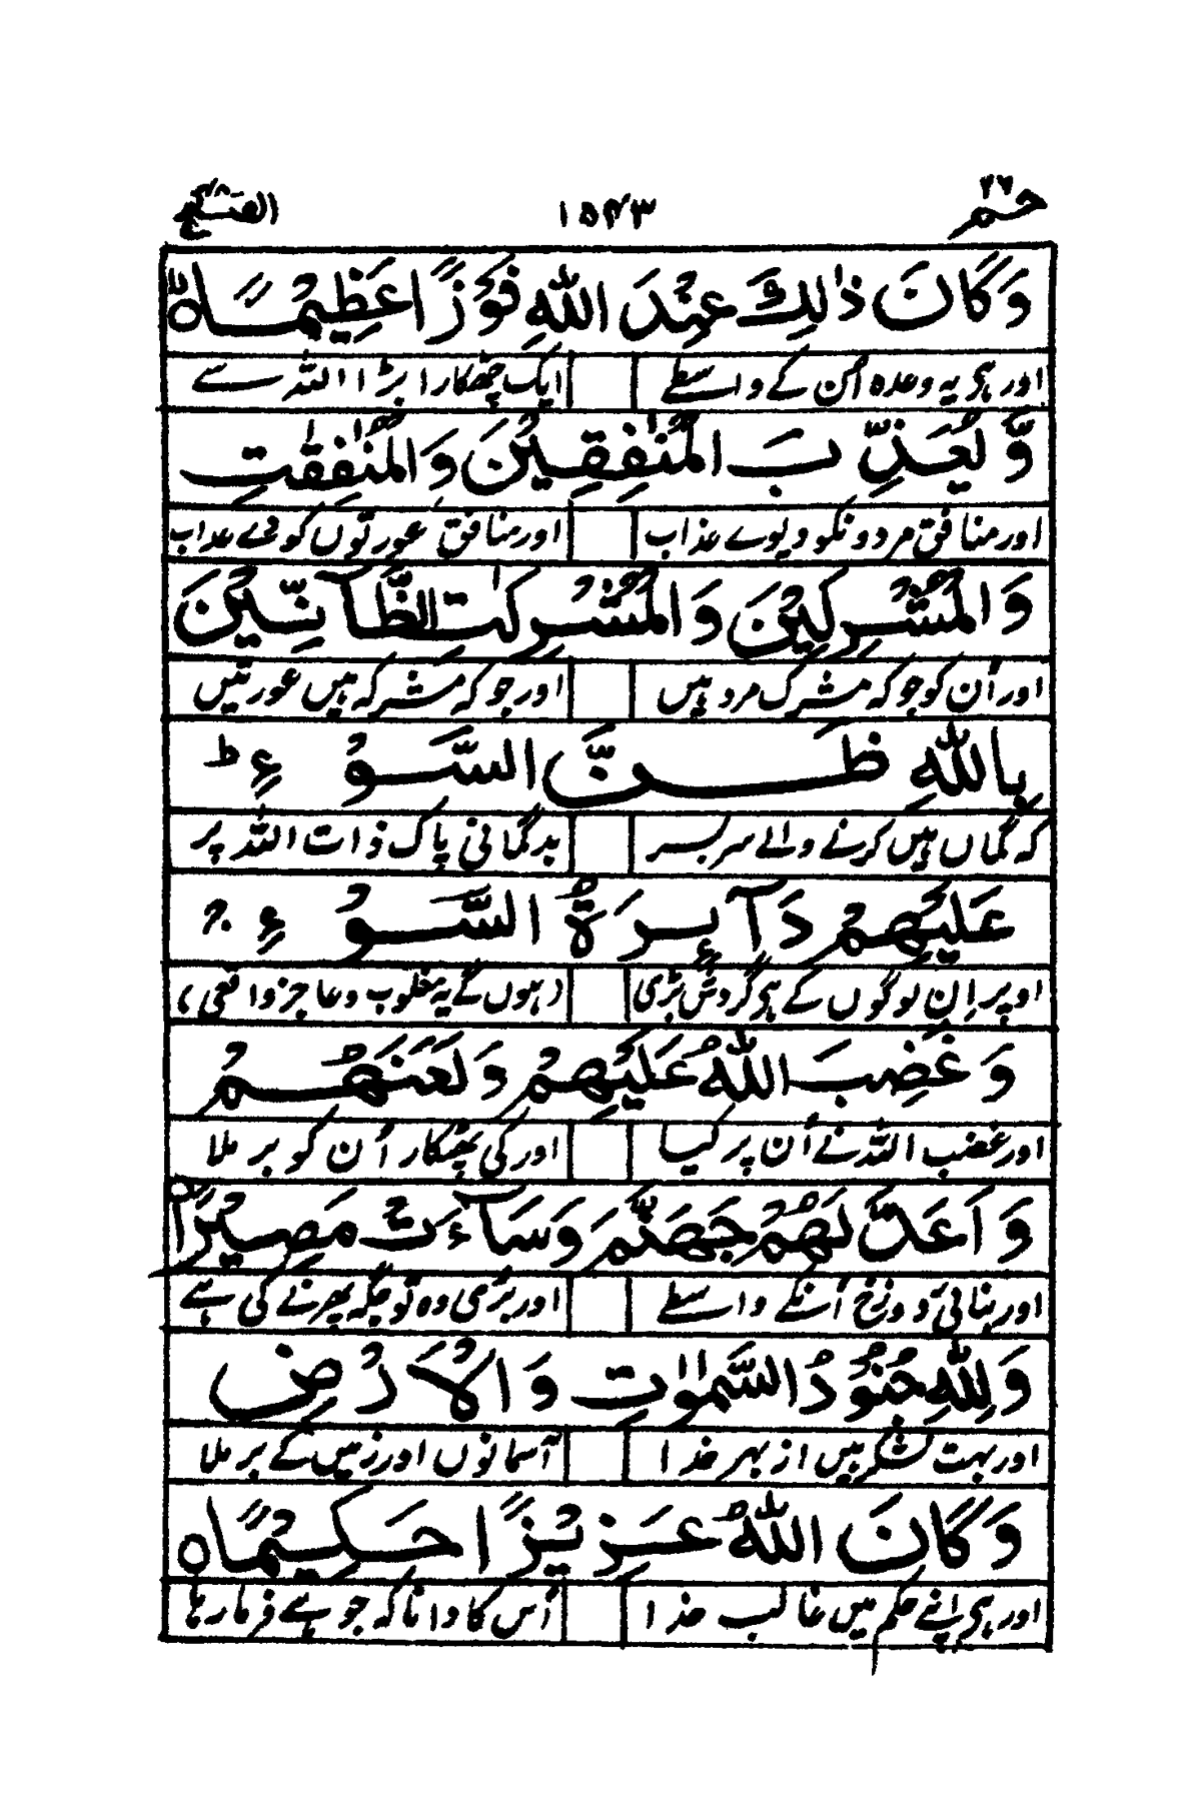 حٰمٓ ٢٦ ١٥٤٣ الفتح ٤٨
وَكَانَ ذٰلِكَ عِنْدَ اللّٰهِ فَوْزًا عَظِيْمًا ۙ
اور ہی یہ وعدہ اُن کے واسطے ایک چھٹکارا بڑا اللہ سے
وَّيُعَذِّبَ الْمُنٰفِقِيْنَ وَالْمُنٰفِقٰتِ
اور منافق مردونکو دیوے عذاب اور منافق عورتوں کو دے عذاب
وَالْمُشْرِكِيْنَ وَالْمُشْرِكٰتِ الظَّآنِّيْنَ
اور اُن کو جو کہ مشرک مرد ہیں اور جو کہ مشرکہ ہیں عورتیں
بِاللّٰهِ ظَنَّ السَّوْءِ ؕ
کہ گماں ہیں کرنے والے سربسر بدگمانی پاک ذات اللہ پر
عَلَيْهِمْ دَآئِرَةُ السَّوْءِ ۚ
اوپر اِن لوگوں کے ہی گردش بڑی (ہوں گے یہ مغلوب و عاجز واقعی)
وَغَضِبَ اللّٰهُ عَلَيْهِمْ وَلَعَنَهُمْ
اور غضب اللہ نے اُن پر کیا اور کی پھٹکار اُن کو برملا
وَاَعَدَّ لَهُمْ جَهَنَّمَ وَسَآءَتْ مَصِيْرًا
اور بنائی دوزخ اُنکے واسطے اور بُری وہ تو جگہ پھرنے کی ہے
وَلِلّٰهِ جُنُوْدُ السَّمٰوٰتِ وَالْاَرْضِ
اور بہت لشکر ہیں از بہر خدا آسمانوں اور زمیں کے برملا
وَكَانَ اللّٰهُ عَزِيْزًا حَكِيْمًا ○
اور ہی اپنے حکم میں غالب خدا اُس کا دانا کہ جو ہے فرما رہا